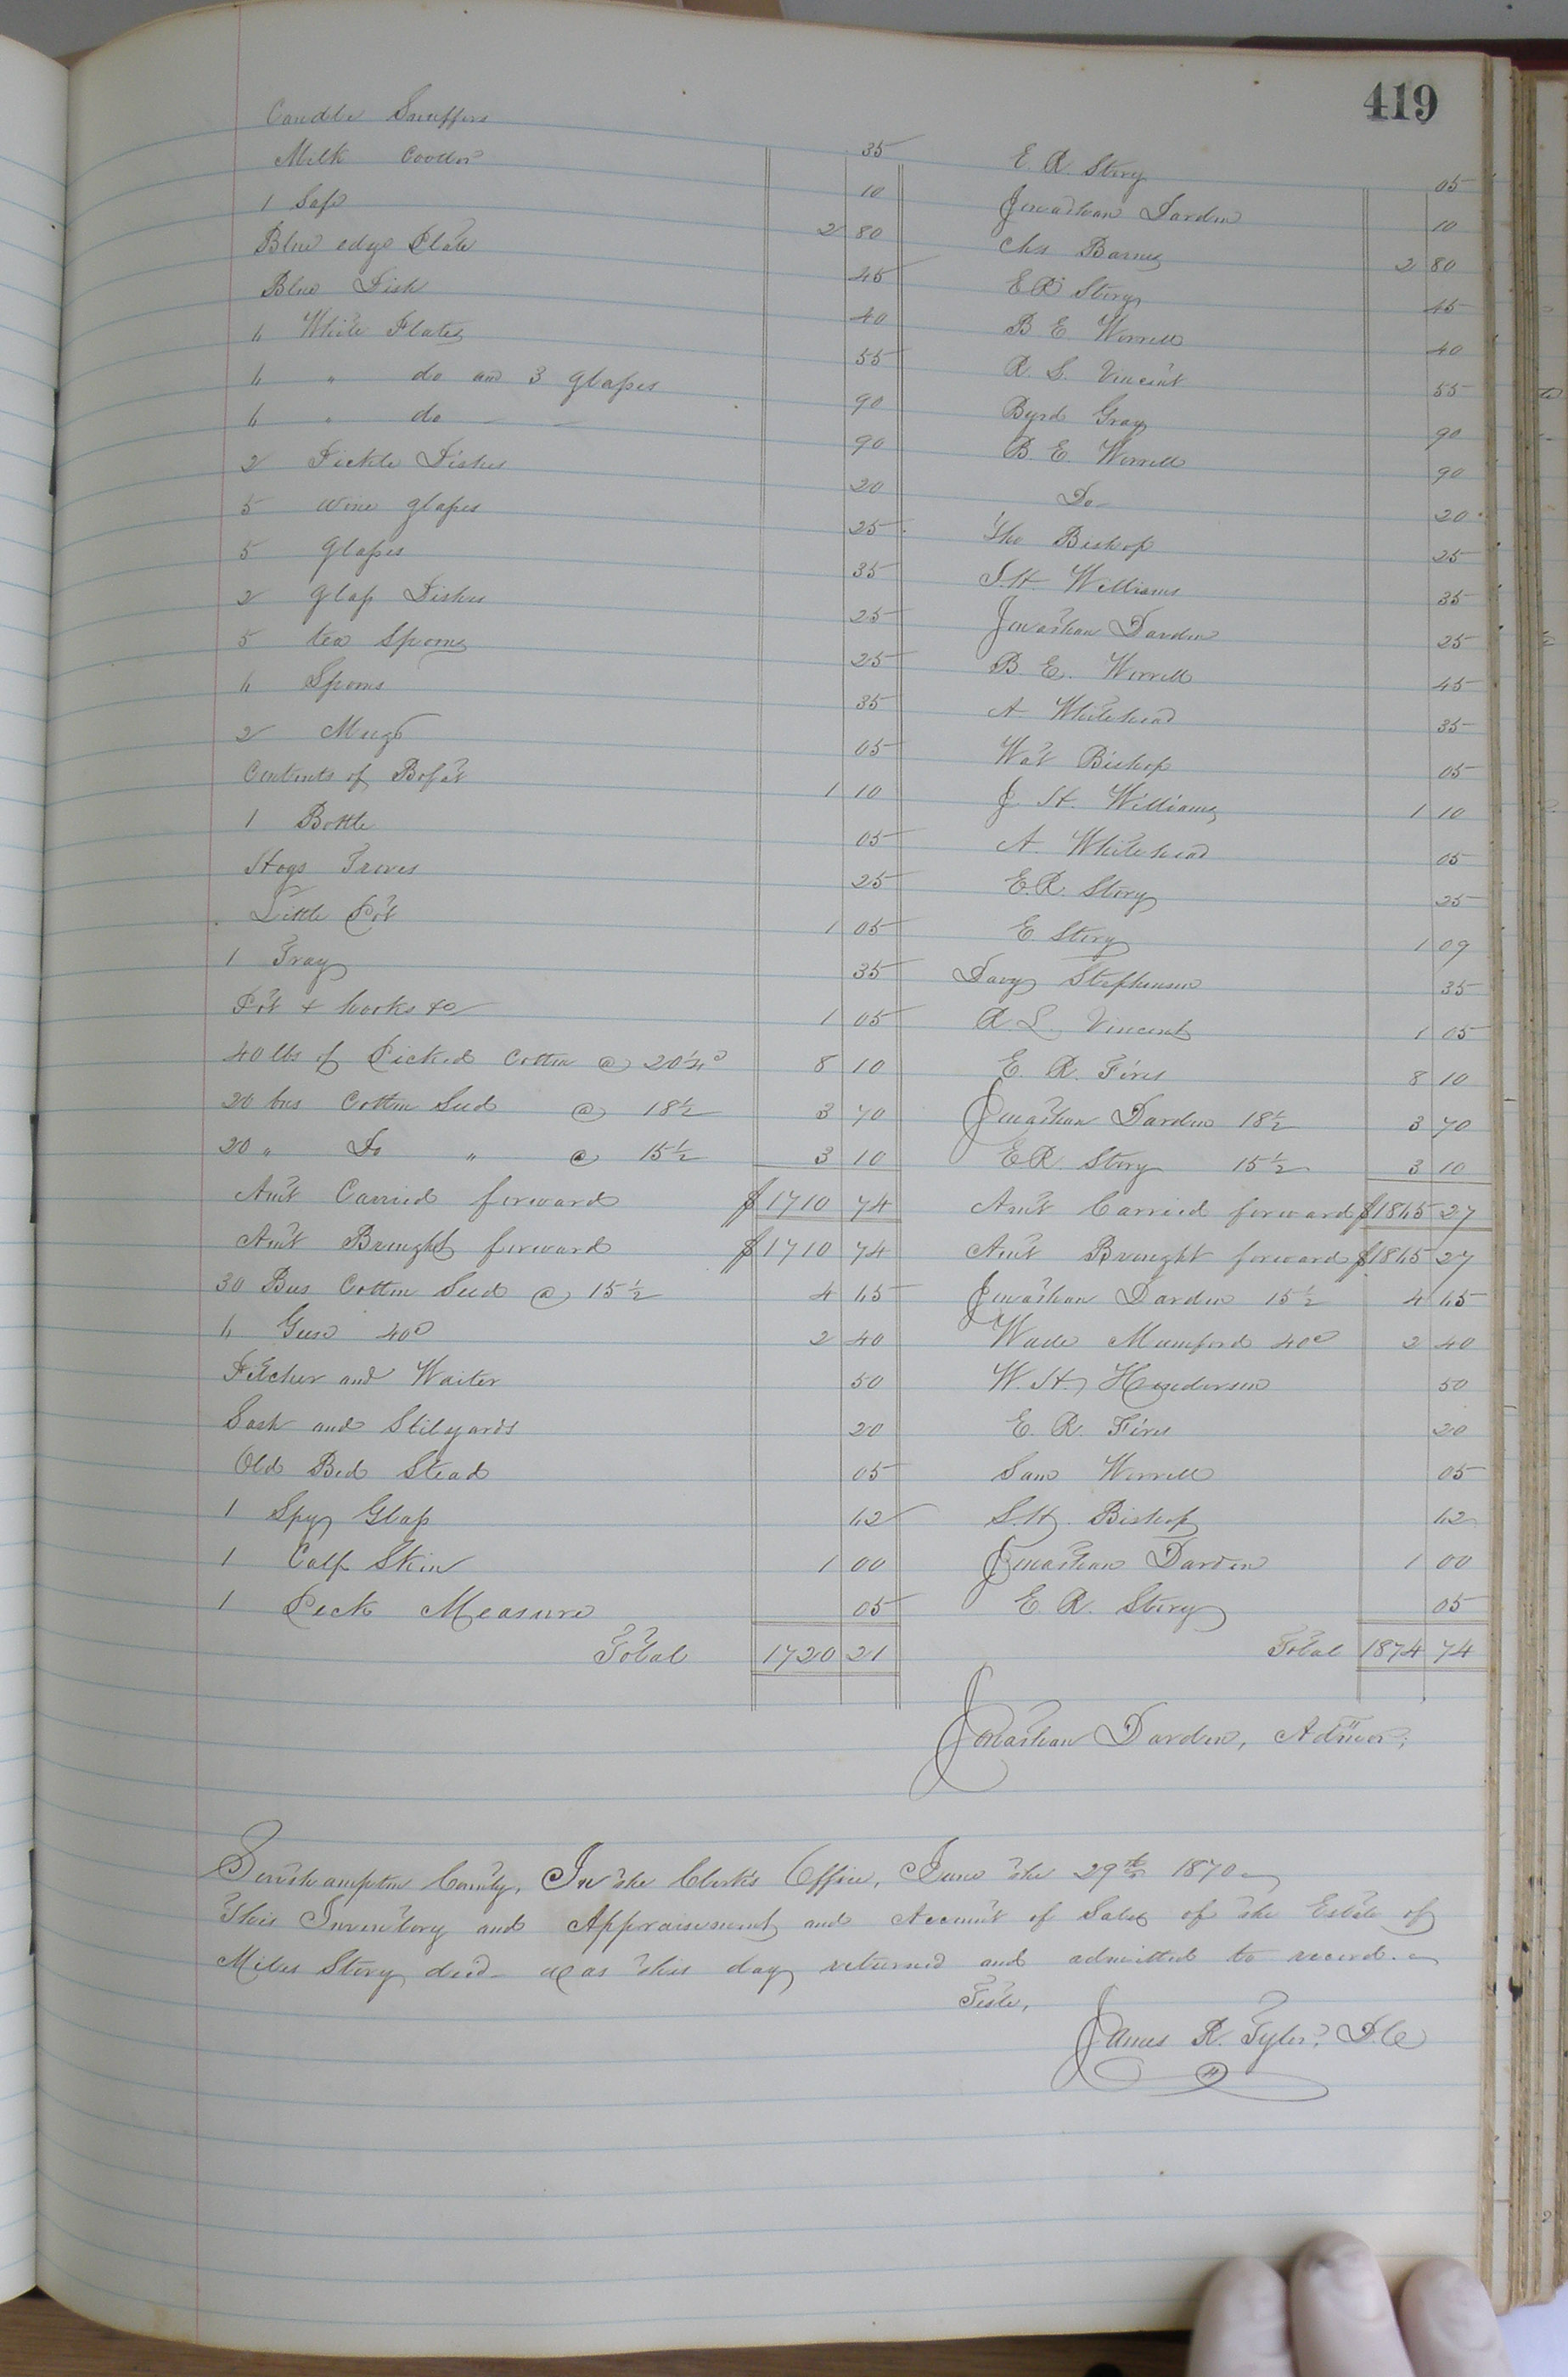 419
Candle Snuffers 35 E. R. Story 05
Milk Cooler 10 Jonathan Darden 10
1 Safe 2 80 Chs Barnes 2 80
Blue edge Plate 45 E R Story 45
Blue Dish 40 B E Worrell 40
6 White Plates 55 R. S. Vincent 55
6 " do and 3 glasses 90 Byrd Gray 90
6 " do 90 B. E. Worrell 90
2 Pickle Dishes 20 Do 20
5 wine glasses 25 Tho Bishop 25
5 glasses 35 J. H. Williams 35
2 glass Dishes 25 Jonathan Darden 25
5 tea Spoons 25 B E. Worrell 45
6 Spoons 35 A Whitehead 35
2 Mugs 05 Wat Bishop 05
Contents of Bofat 1 10 J H. Williams 1 10
1 Bottle 05 A. Whitehead 05
Hogs Troves 25 E. R. Story 25
Little Pot 1 05 E Story 1 09
1 Tray 35 Davy Stephenson 35
Pot & hooks &c 1 05 R. L. Vincent 1 05
40 lbs of Picked Cotton @ 20¼c 8 10 E. R. Fires 8 10
20 bus Cotton Seed @ 18½ 3 70 Jonathan Darden 18½ 3 70
20 " Do " @ 15½ 3 10 E R Story 15½ 3 10
Am't Carried forward $1710 74 Am't Carried forward $1865 27
Am't Brought forward $1710 74 Am't Brought forward $1865 27
30 Bus Cotton Seed @ 15½ 4 65 Jonathan Darden 15½ 4 65
6 Geese 40c 2 40 Wade Mumford 40c 2 40
Pitcher and Waiter 50 W. H. Henderson 50
Sash and Stilyards 20 E. R. Fires 20
Old Bed Stead 05 Sam Worrell 05
1 Spy Glass 62 S. H. Bishop 62
1 Calf Skin 1 00 Jonathan Darden 1 00
1 Peck Measure 05 E. R. Story 05
Total 1720 21 Total 1874 74
Jonathan Darden, Admor.
Southampton County, In the Clerk's Office, June the 29th 1870
This Inventory and Appraisement and Account of Sales of the Estate of
Miles Story dec'd was this day returned and admitted to record.
Teste,
James R. Tyler. D.C